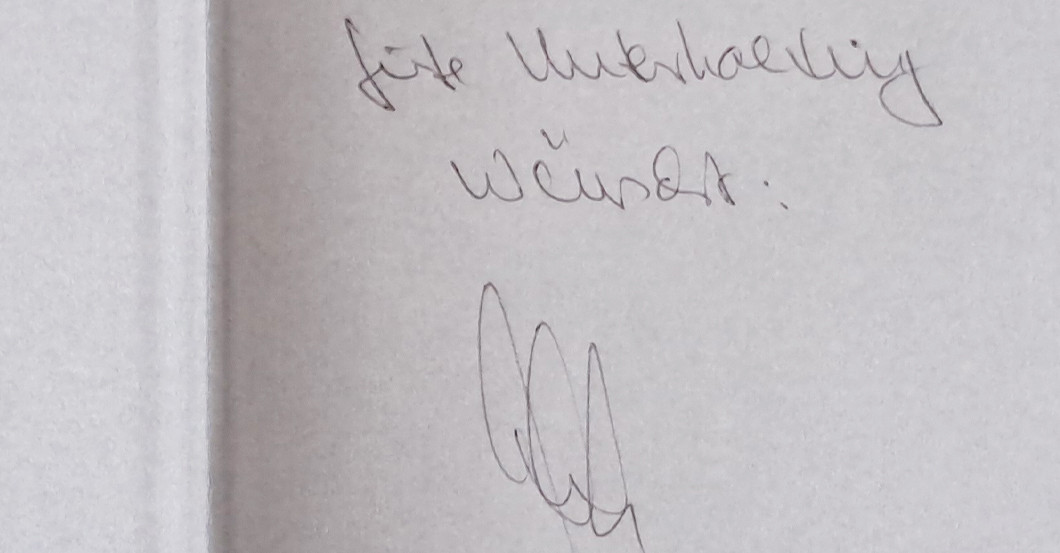 Gute Unterhaltung
wünscht: